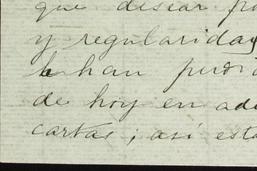 que desear
y regularida
han
de hoy en ade
cartas; así est